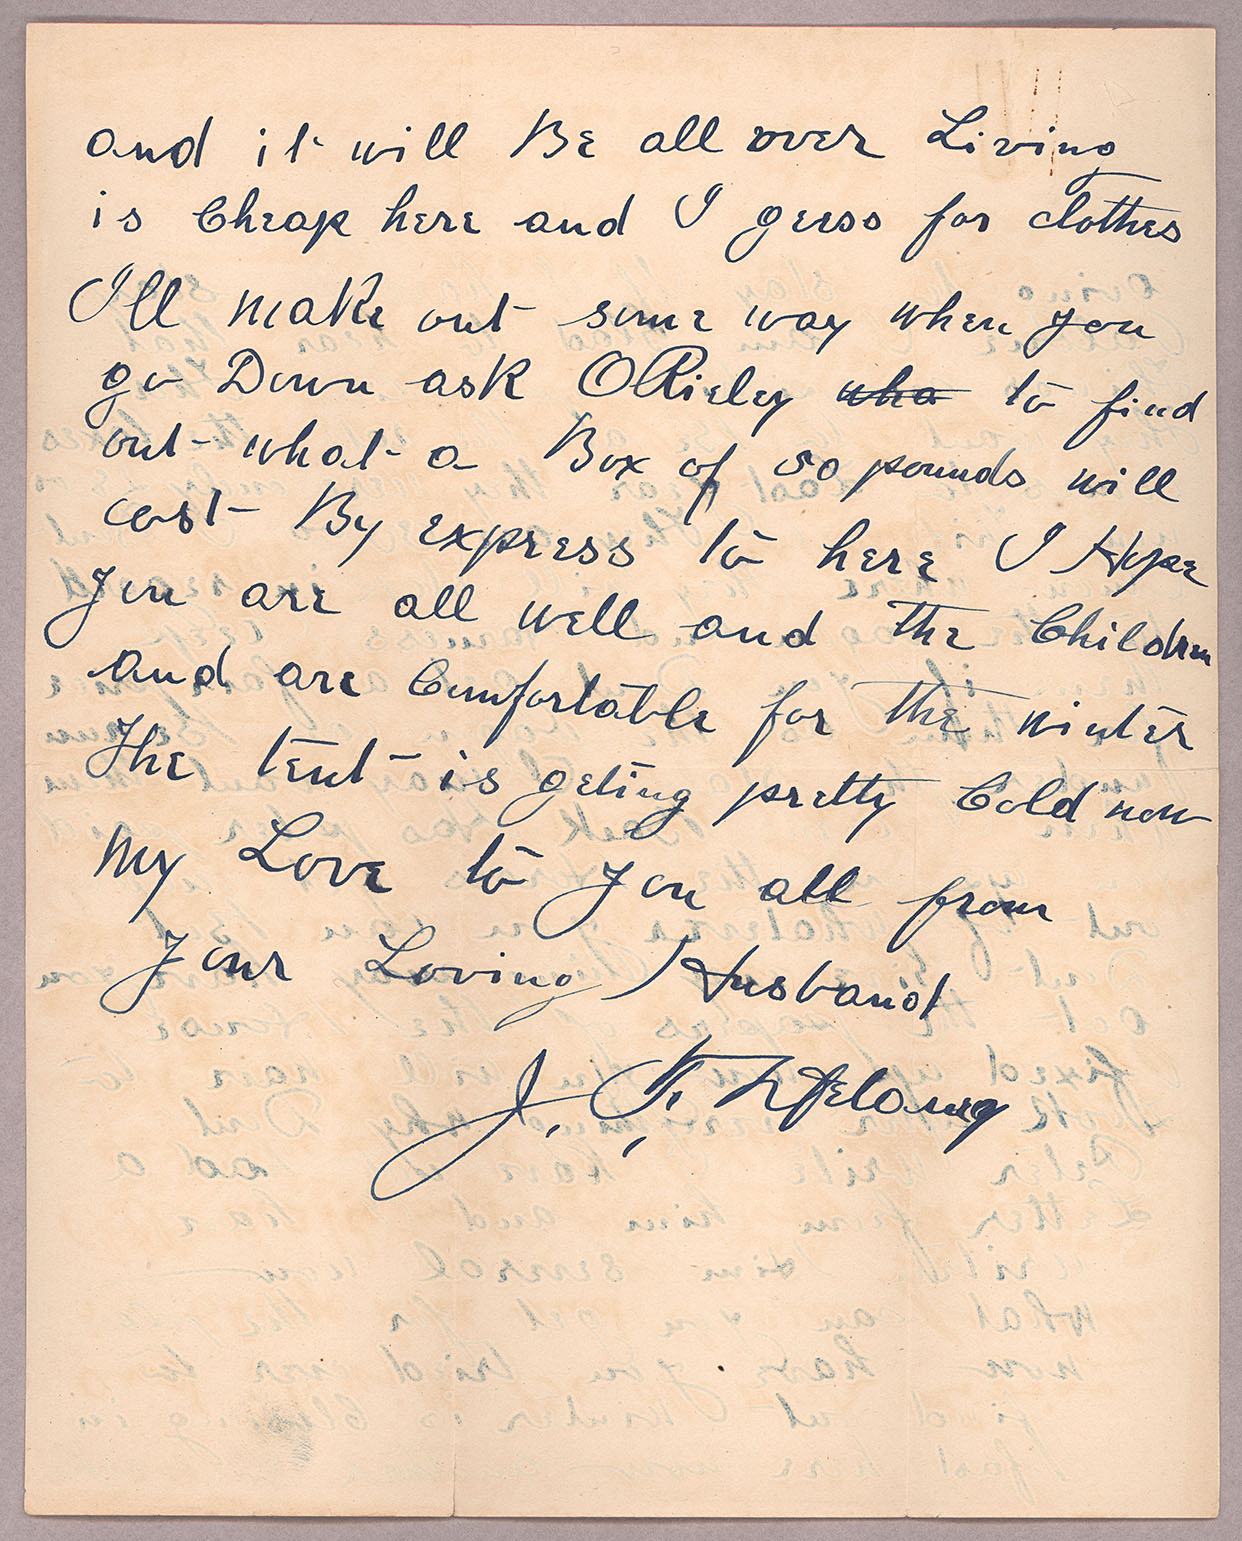 and it will Be all over Living
is Cheap here and I guess for clothes
I'll make out some way when you
go Down ask ORieley who to find
out what a Box of 50 pounds will
cost By express to here I Hope
you are all well and the Children
and are Comfortable for the winter
The tent is geting pretty Cold now
My Love to you all from
your Loving Husband
J. F.